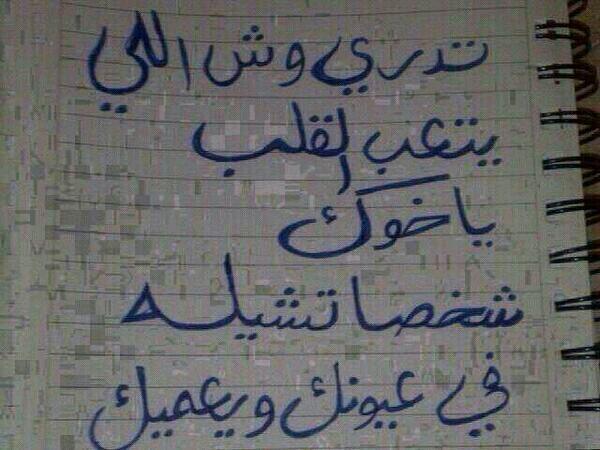 تدري وش اللي
يتعب القلب
ياخوك
شخصا تشيله
في عيونك ويعميك